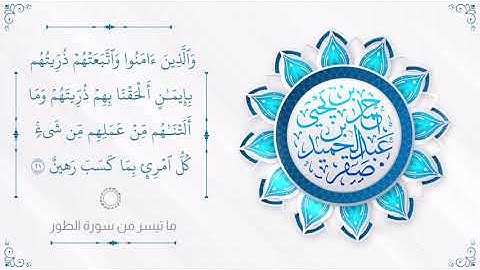 وَٱلَّذِينَ ءَامَنُوا۟ وَٱتَّبَعَتْهُمْ ذُرِّيَّتُهُم
بِإِيمَـٰنٍ أَلْحَقْنَا بِهِمْ ذُرِّيَّتَهُمْ وَمَآ
أَلَتْنَـٰهُم مِّنْ عَمَلِهِم مِّن شَىْءٍۢ ۚ
كُلُّ ٱمْرِئٍۭ بِمَا كَسَبَ رَهِينٌۭ ٢١
ما تيسر من سورة الطور
بن يحيى
بن
عبدالحميد
صفر